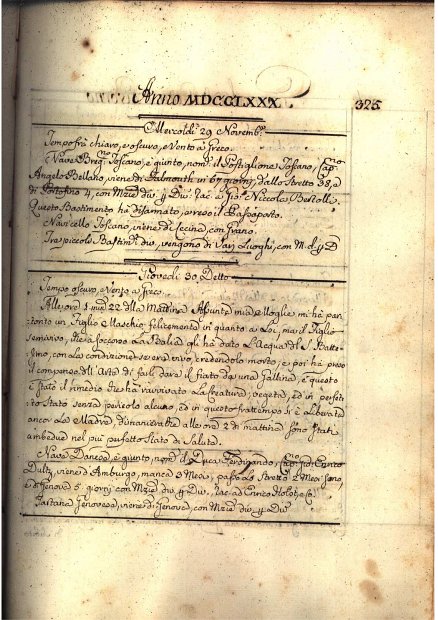 Anno MDCCLXXX
325
Mercoldì 29 Novemb.
Tempo frà chiaro, e oscuro, e Vento a Greco.
Nave Toscano, è giunto, nom. il Postiglione Toscano, Cap.no
Angelo Bellano, viene di Falmouth in 67 giorni, dallo Stretto 38, e
di Portofino 4, con Mzie div. p Div. Rac. a Gio. Niccola Bertolli
Questo Bastimento hà disarmato, e reso il Passaporto.
Navicello Toscano, viene di Cecina, con Grano.
Tre piccoli Bastim.ti div. vengono di Varj Luoghi, con M. d. p D
Giovedì 30 Detto
Tempo oscuro, e Vento a Greco.
Alle ore 1 22 della Mattina Assunta mia Moglie mi hà par
torito un Figlio Maschio, felicemente in quanto a Lei, ma il Figlio
semivivo, che la Balia gli hà dato L'Acqua del S. Batte
simo, con la condizione se era vivo, credendolo morto, e poi hà preso
il compenso dell'Arte di farli dare il fiato da una Gallina, e questo
è stato il rimedio che hà ravvivato La Creatura, vegeta, ed in perfet
to Stato senza pericolo alcuno, ed in questo frattempo si è Liberata
ancor La Madre, di maniera che alle ore 2 di mattina sono stati
ambedue nel più perfetto Stato di Salute.
Nave Danese, è giunto, nom. il Duca Ferdinando, Cap.no
viene d'Amburgo, manca 3 Mesi, passò Lo Stretto 2 Mesi sono,
e di Genova 5 giorni, con Mzie div. p Div. Rac. ad Enrico
Tartana Genovese, viene di Genova, con Mzie div. p Div